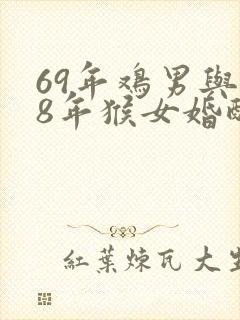 69年鷄男與
8年猴女婚配
紅葉煉瓦大生